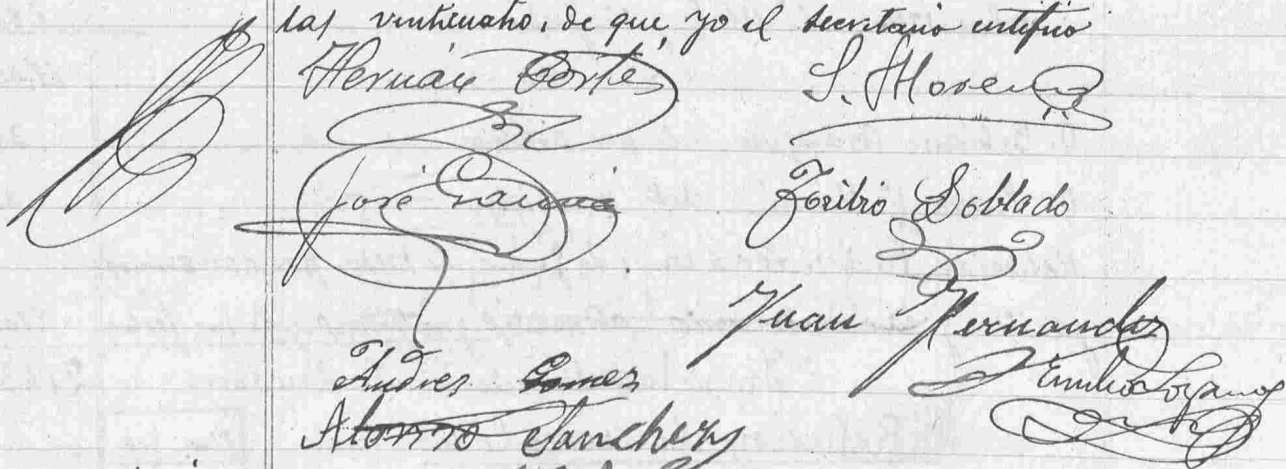 las veinticuatro, de que, yo el secretario certifico
Hernán Cortés
S. Moreno
José García
Toribio Doblado
Juan Hernandez
Andres Gomez
Emilio Lozano
Alonso Sanchez